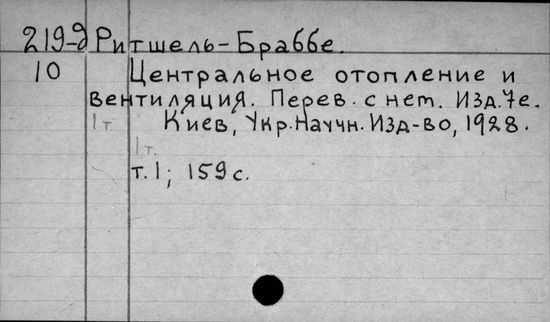 219-д Ритшель-Браббе.
10 Центральное отопление и
вентиляция. Перев. с нем. Изд. 7е.
1т Киев, Укр. Научн. Изд-во, 1928.
1т.
т. 1; 159 с.